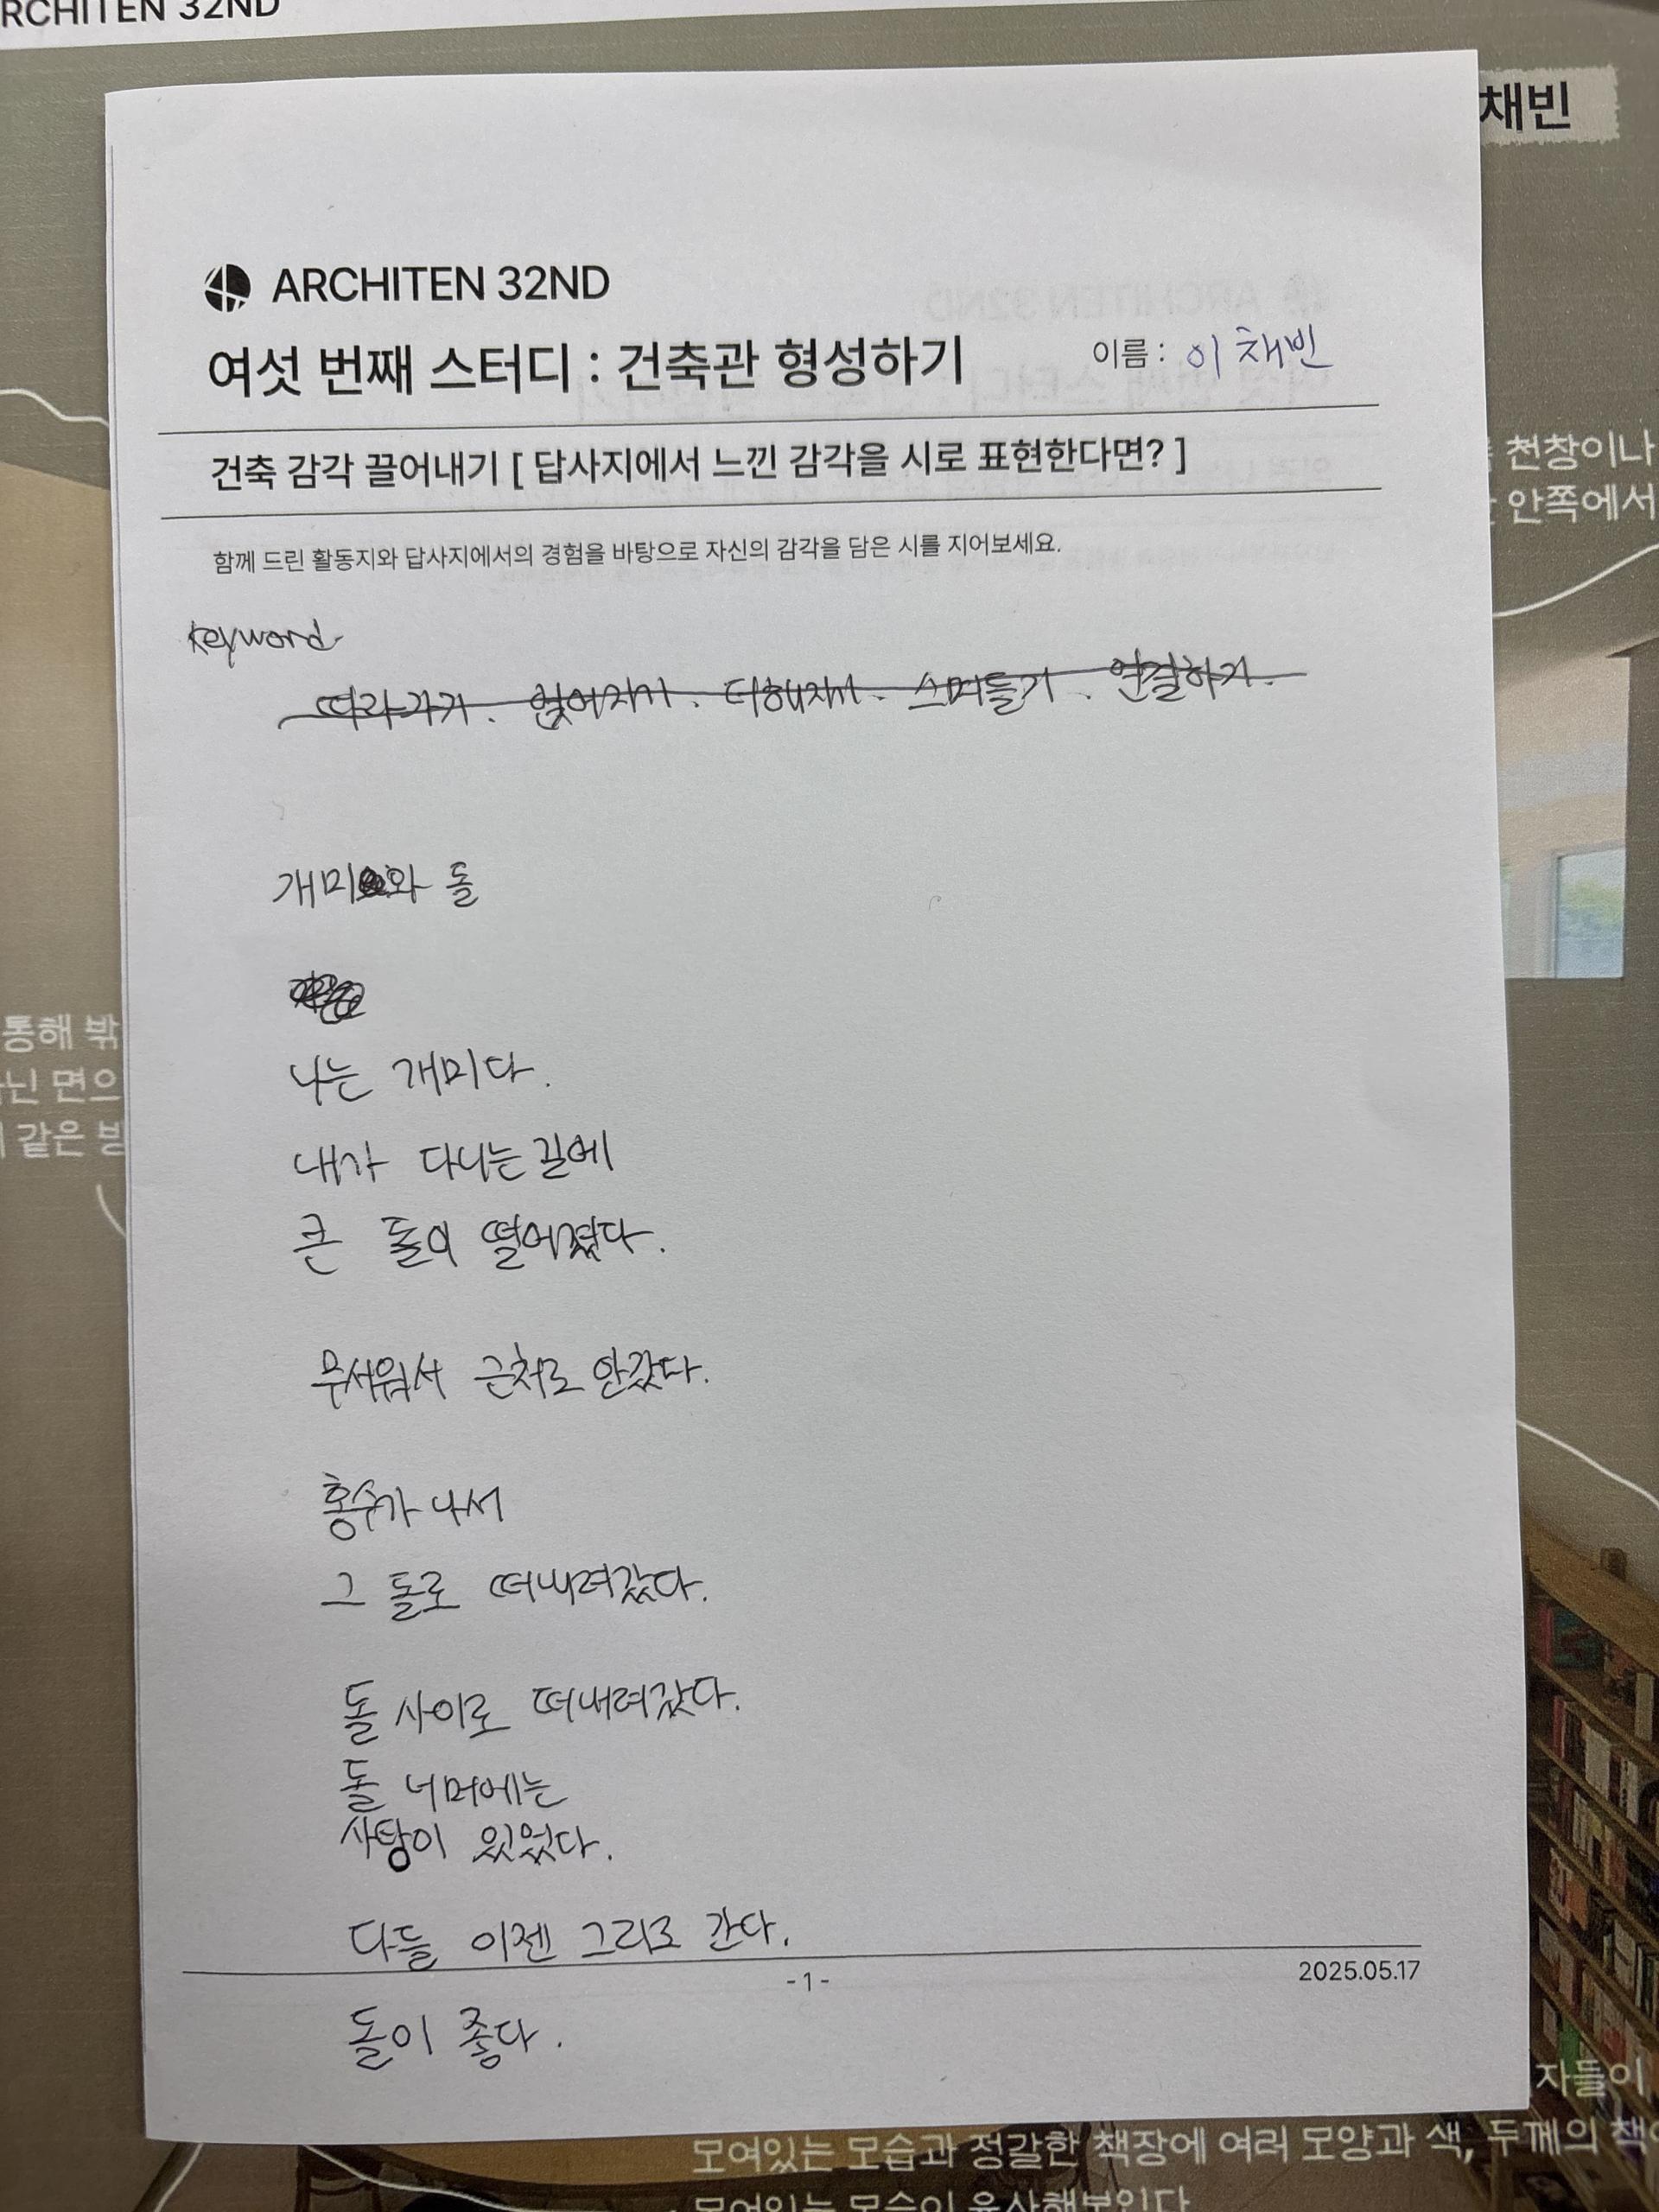 RCHITEN 32ND
채빈
ARCHITEN 32ND
여섯 번째 스터디 : 건축관 형성하기
이름 : 이채빈
건축 감각 끌어내기 [ 답사지에서 느낀 감각을 시로 표현한다면? ]
천창이나
안쪽에서
함께 드린 활동지와 답사지에서의 경험을 바탕으로 자신의 감각을 담은 시를 지어보세요.
keyword
따라가기. 엮어지기. 더해지기. 스며들기. 연결하기.
개미와 돌
나는 개미다.
내가 다니는 길에
큰 돌이 떨어졌다.
통해 밖
닌 면으
같은 방
무서워서 근처로 안갔다.
홍수가 나서
그 돌로 떠내려갔다.
돌 사이로 떠내려갔다.
돌 너머에는
사탕이 있었다.
다들 이젠 그리로 간다.
- 1 -
2025.05.17
돌이 좋다.
자들이
모여있는 모습과 정갈한 책장에 여러 모양과 색, 두께의 책
모여있는 모습이 유사해보인다